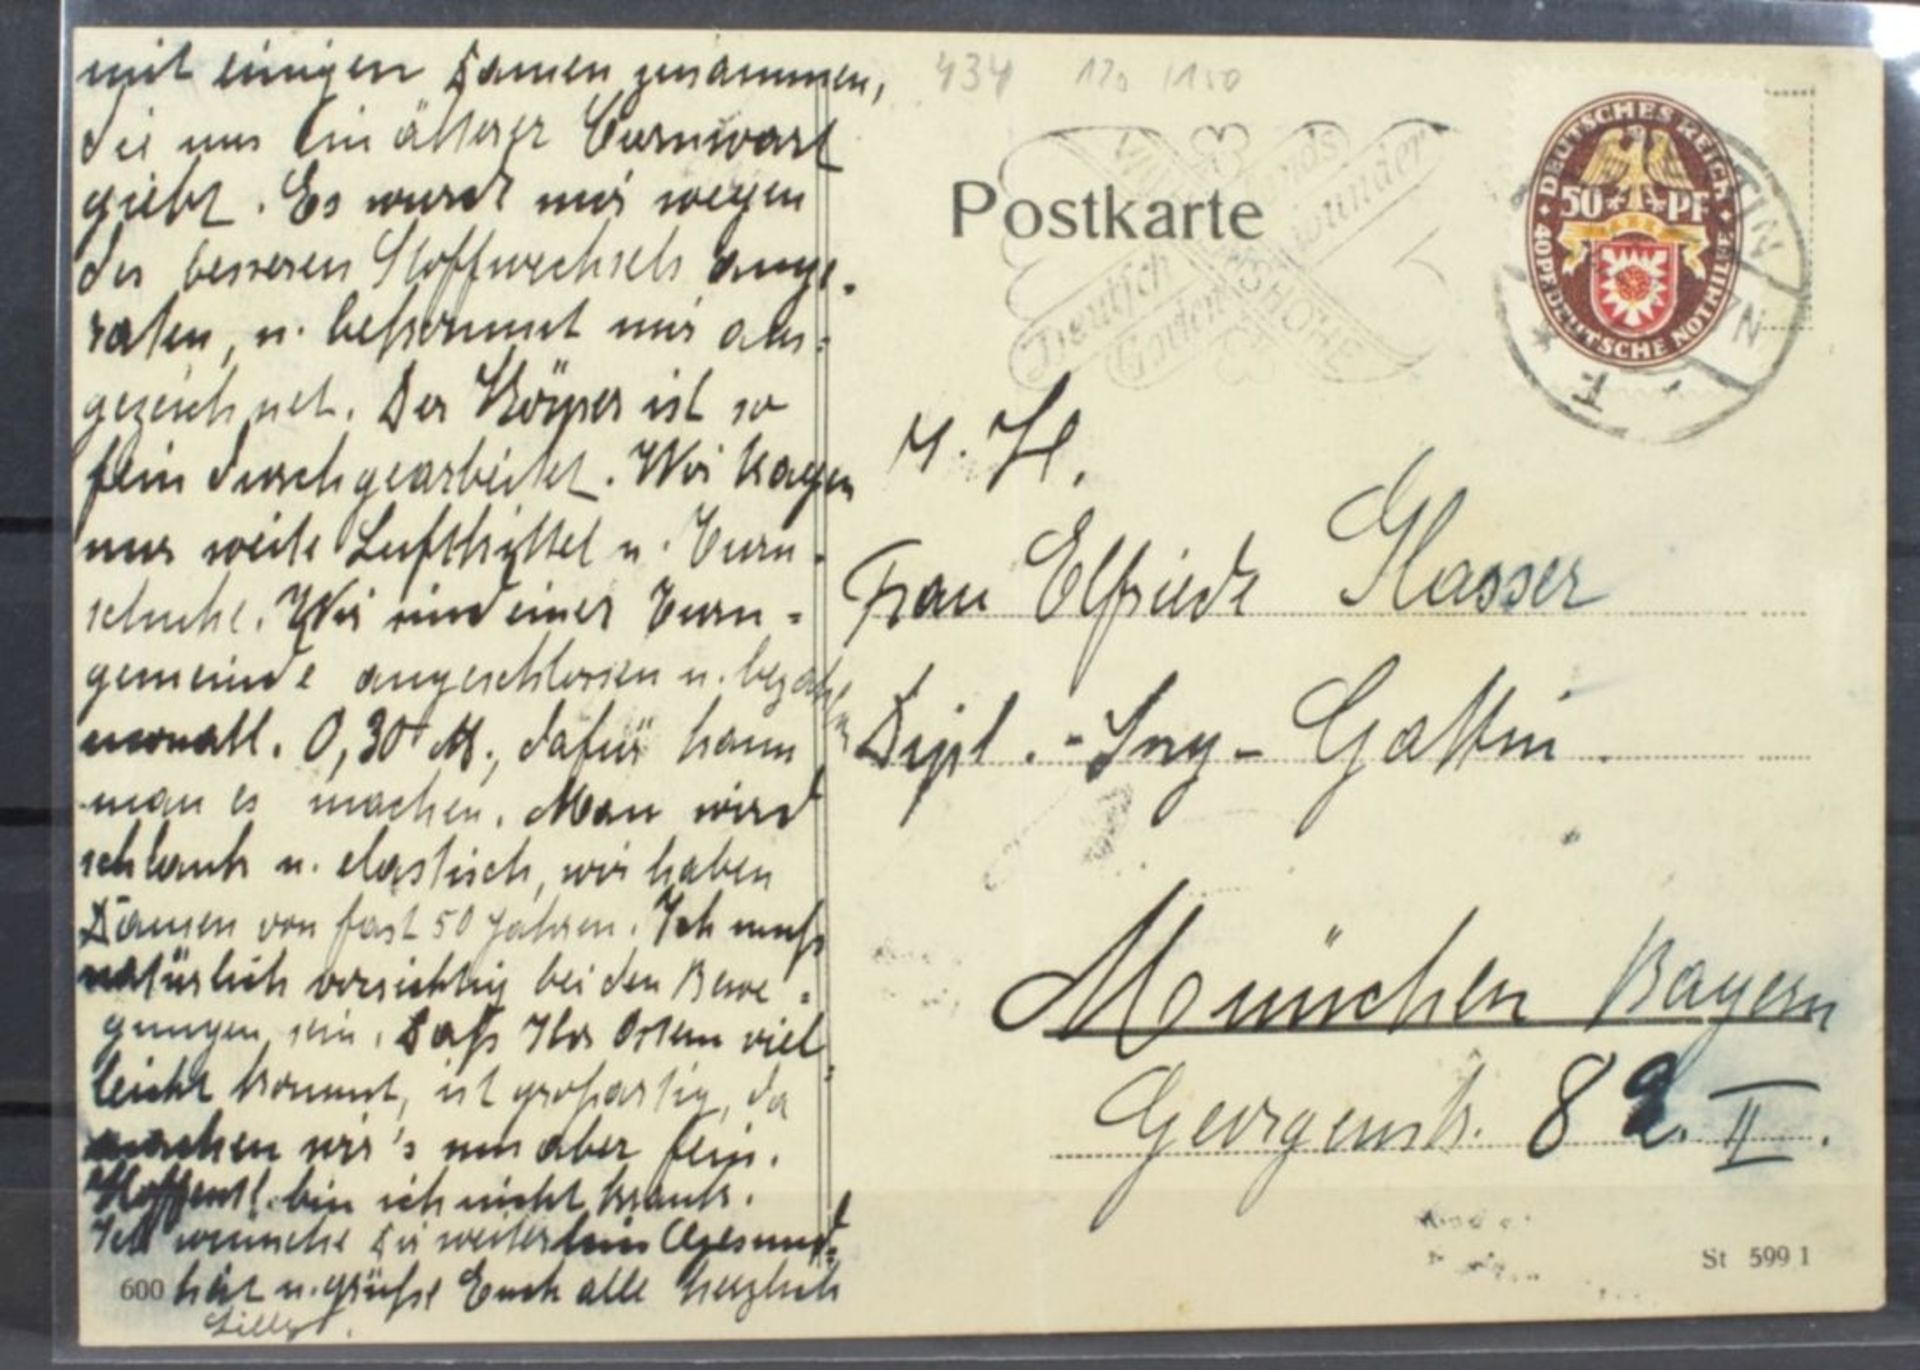 mit einigen Damen zusammen,
die uns ein älterer Turnwart
giebt. Es wurde mir wegen
des besseren Stoffwechsels ange-
raten, u. bekommt mir aus-
gezeichnet. Der Körper ist so
fein durchgearbeitet. Wir tragen
nur weite Luftkittel u. Turn-
schuhe. Wir sind einer Turn-
gemeinde angeschlossen u. bezahlen
monatl. 0,30 M., dafür kann
man es machen. Man wird
schlank u. elastisch, wir haben
Damen von fast 50 Jahren. Ich muß
natürlich vorsichtig bei den Bewe-
gungen sein. Daß Ihr Ostern viel-
leicht kommt, ist großartig, da
machen wir's uns aber fein.
Hoffentl. bin ich nicht krank.
Ich wünsche Dir weiterhin Gesund-
heit u. grüße Euch alle herzlich
Lilly.
600
434 120 1150
Postkarte
Deutschlands
Gartenwunder
DEUTSCHES REICH
50 PF
40PF DEUTSCHE NOTHILFE
Frau Elfriede Glasser
Dipl.-Ing-Gattin.
München Bayern
Georgenstr. 82. II.
St 599 I